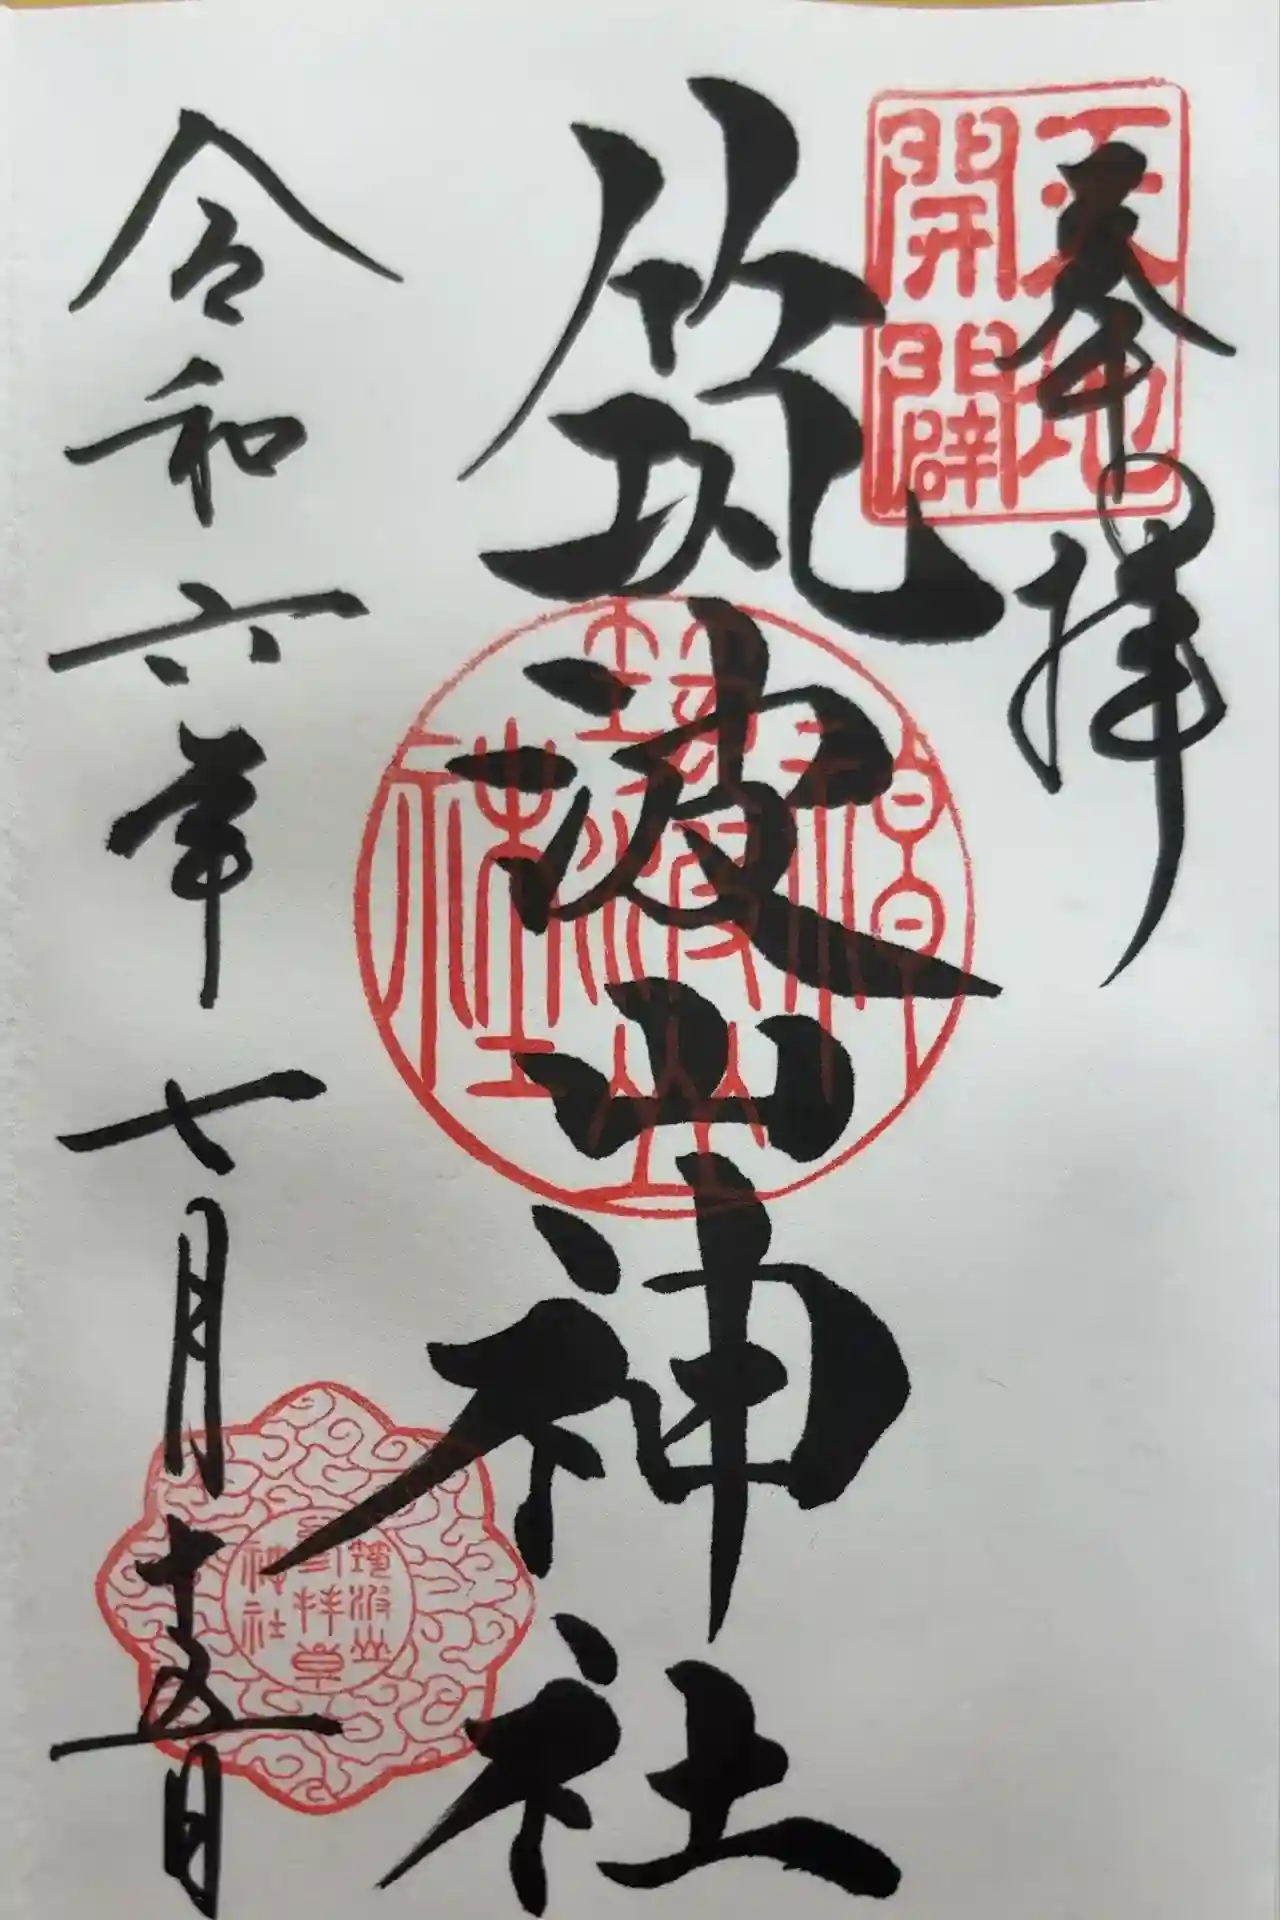 奉拝
天地
開闢
筑波山神社
筑波山
参拝章
神社
令和六年七月十五日